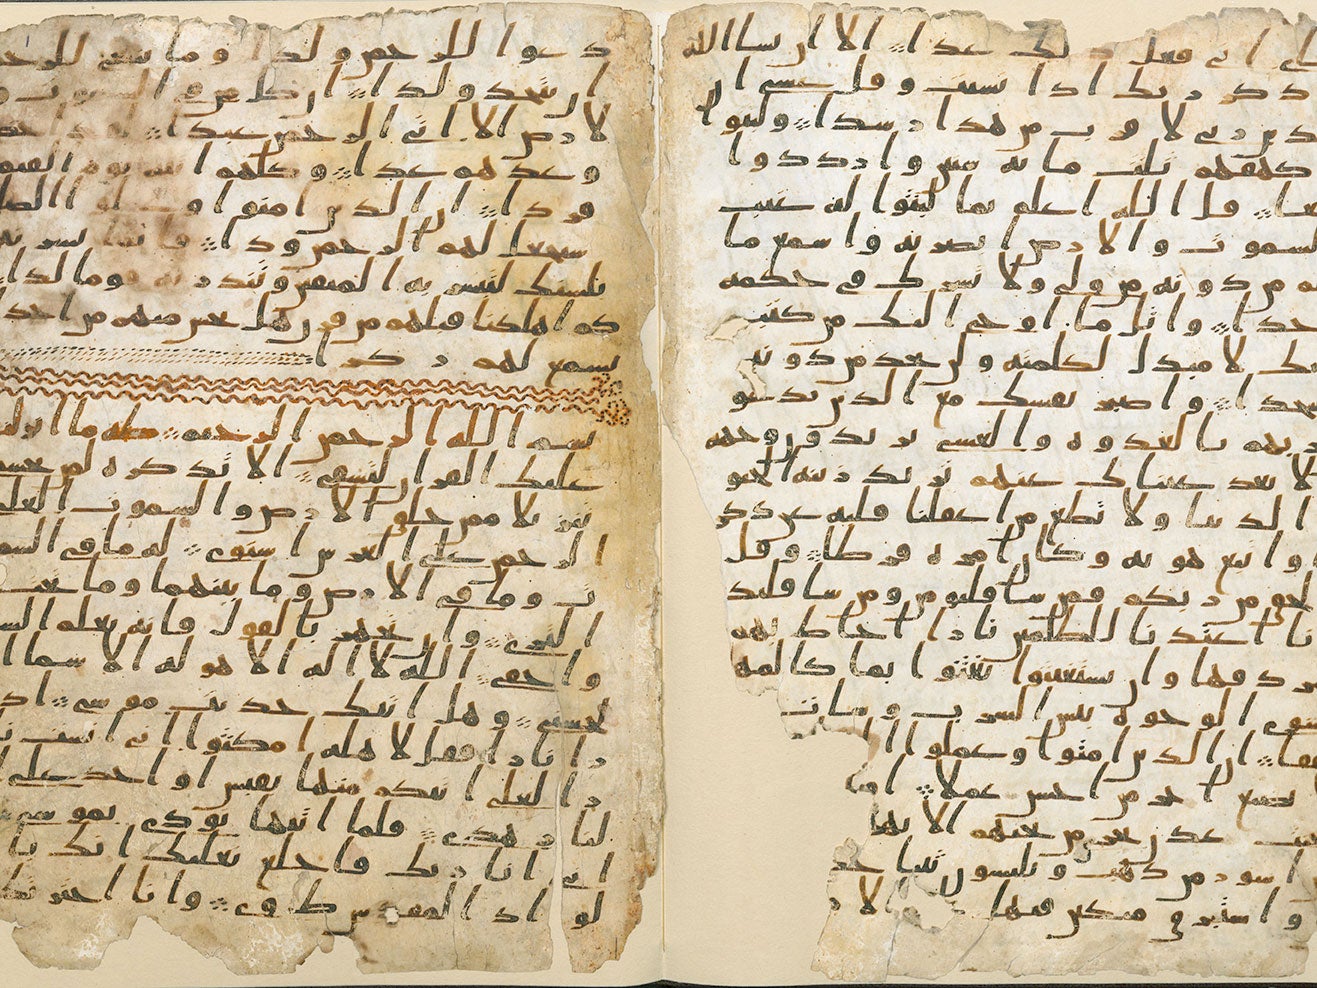 ـى انى فعل ذلك غدا ۝ الا ان يشا الله
ذكر ربك اذا نسيت وقل عسى ا
ـدين ربي لاقرب من هذا رشدا ۝ ولبثوا
كهفهم ثلث مائة سنين وازدادوا
ـعا ۝ قل الله اعلم بما لبثوا له غيب
السموت والارض ابصر به واسمع ما
ـم من دونه من ولي ولا يشرك في حكمه
ـحدا ۝ واتل ما اوحي اليك من كتب
ـك لا مبدل لكلمته ولن تجد من دونه
ـتحدا ۝ واصبر نفسك مع الذين يدعو
ربهم بالغدوة والعشي يريدون وجهه
لا تعد عيناك عنهم تريد زينة الحيو
الدنيا ولا تطع من اغفلنا قلبه عن ذكر
واتبع هويه وكان امره فرطا ۝ وقل
الحق من ربكم فمن شا فليومن ومن شا فليكـ
نا اعتدنا للظلمين نارا احاط بهم
ـردقها وان يستغيثوا يغثوا بما كالمه
يشوي الوجوه بئس الشرب وسات
ـفقا ۝ ان الذين امنوا وعملوا ا
نضيع اجر من احسن عملا ۝ او
جنت عدن تجري من تحتهم الانها
اسور من ذهب ويلبسون ثيابا خضر
واستبرق متكين فيها الا
دعوا للرحمن ولدا ۝ وما ينبغي للرحمـ
ان يتخذ ولدا ۝ ان كل من في السموت و
لارض الا اتي الرحمن عبدا ۝ لقد احصـ
وعدهم عدا ۝ وكلهم اتيه يوم القيمـ
فردا ۝ ان الذين امنوا وعملوا الصلـ
سيجعل لهم الرحمن ودا ۝ فانما يسرنه
بلسنك لتبشر به المتقين وتنذر به قوما لدا ۝
كم اهلكنا قبلهم من قرن هل تحس منهم من احد
تسمع لهم ركزا
بسم الله الرحمن الرحيم ۝ طه ما انزلنا
عليك القران لتشقى ۝ الا تذكرة لمن يخشى
تنزيلا ممن خلق الارض والسموت العلى
الرحمن على العرش استوى ۝ له ما في السمو
ت وما في الارض وما بينهما وما تحت
الثرى ۝ وان تجهر بالقول فانه يعلم السـ
واخفى ۝ الله لا اله الا هو له الاسما ا
لحسنى ۝ وهل اتيك حديث موسى ۝ اذ
را نارا فقال لاهله امكثوا اني انست نا
را لعلي اتيكم منها بقبس او اجد على ا
لنار هدى ۝ فلما اتيها نودي يموسى
اني انا ربك فاخلع نعليك انك با
لواد المقدس طوى ۝ وانا اخترتك